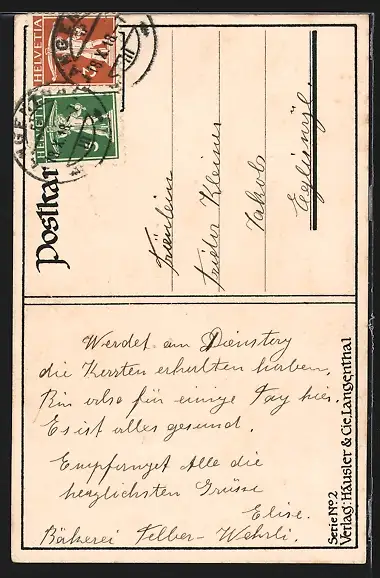 HELVETIA
HELVETIA
Postkar
Fräulein
Frieda Kleiner
Jakob
Egliswyl.
Werdet am Dienstag
die Karten erhalten haben,
Bin also für einige Tag hier.
Es ist alles gesund.
Empfanget Alle die
herzlichsten Grüsse
Elise.
Bäckerei Felber-Wehrli.
Serie No. 2
Verlag: Häusler & Cie, Langenthal